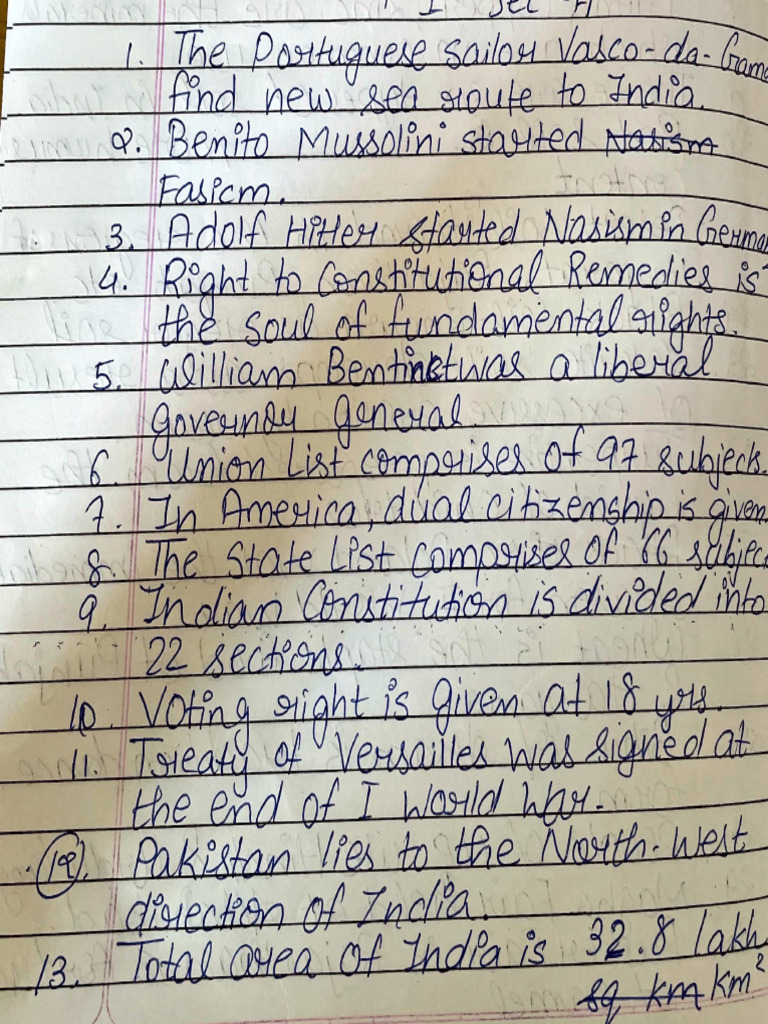 I Sec A
1. The Portuguese sailor Vasco-da-Gama
find new sea route to India.
2. Benito Mussolini started Nasism
Fasicm.
3. Adolf Hitler started Nasism in German
4. Right to Constitutional Remedies is
the soul of fundamental rights.
5. William Bentinct was a liberal
governer general
6. Union List comprises of 97 subjects.
7. In America, dual citizenship is given.
8. The State List comprises of 66 subjec
9. Indian Constitution is divided into
22 sections.
10. Voting right is given at 18 yrs.
11. Treaty of Versailles was signed at
the end of I World War.
12. Pakistan lies to the North-West
direction of India.
13. Total area of India is 32.8 lakh
sq km km²